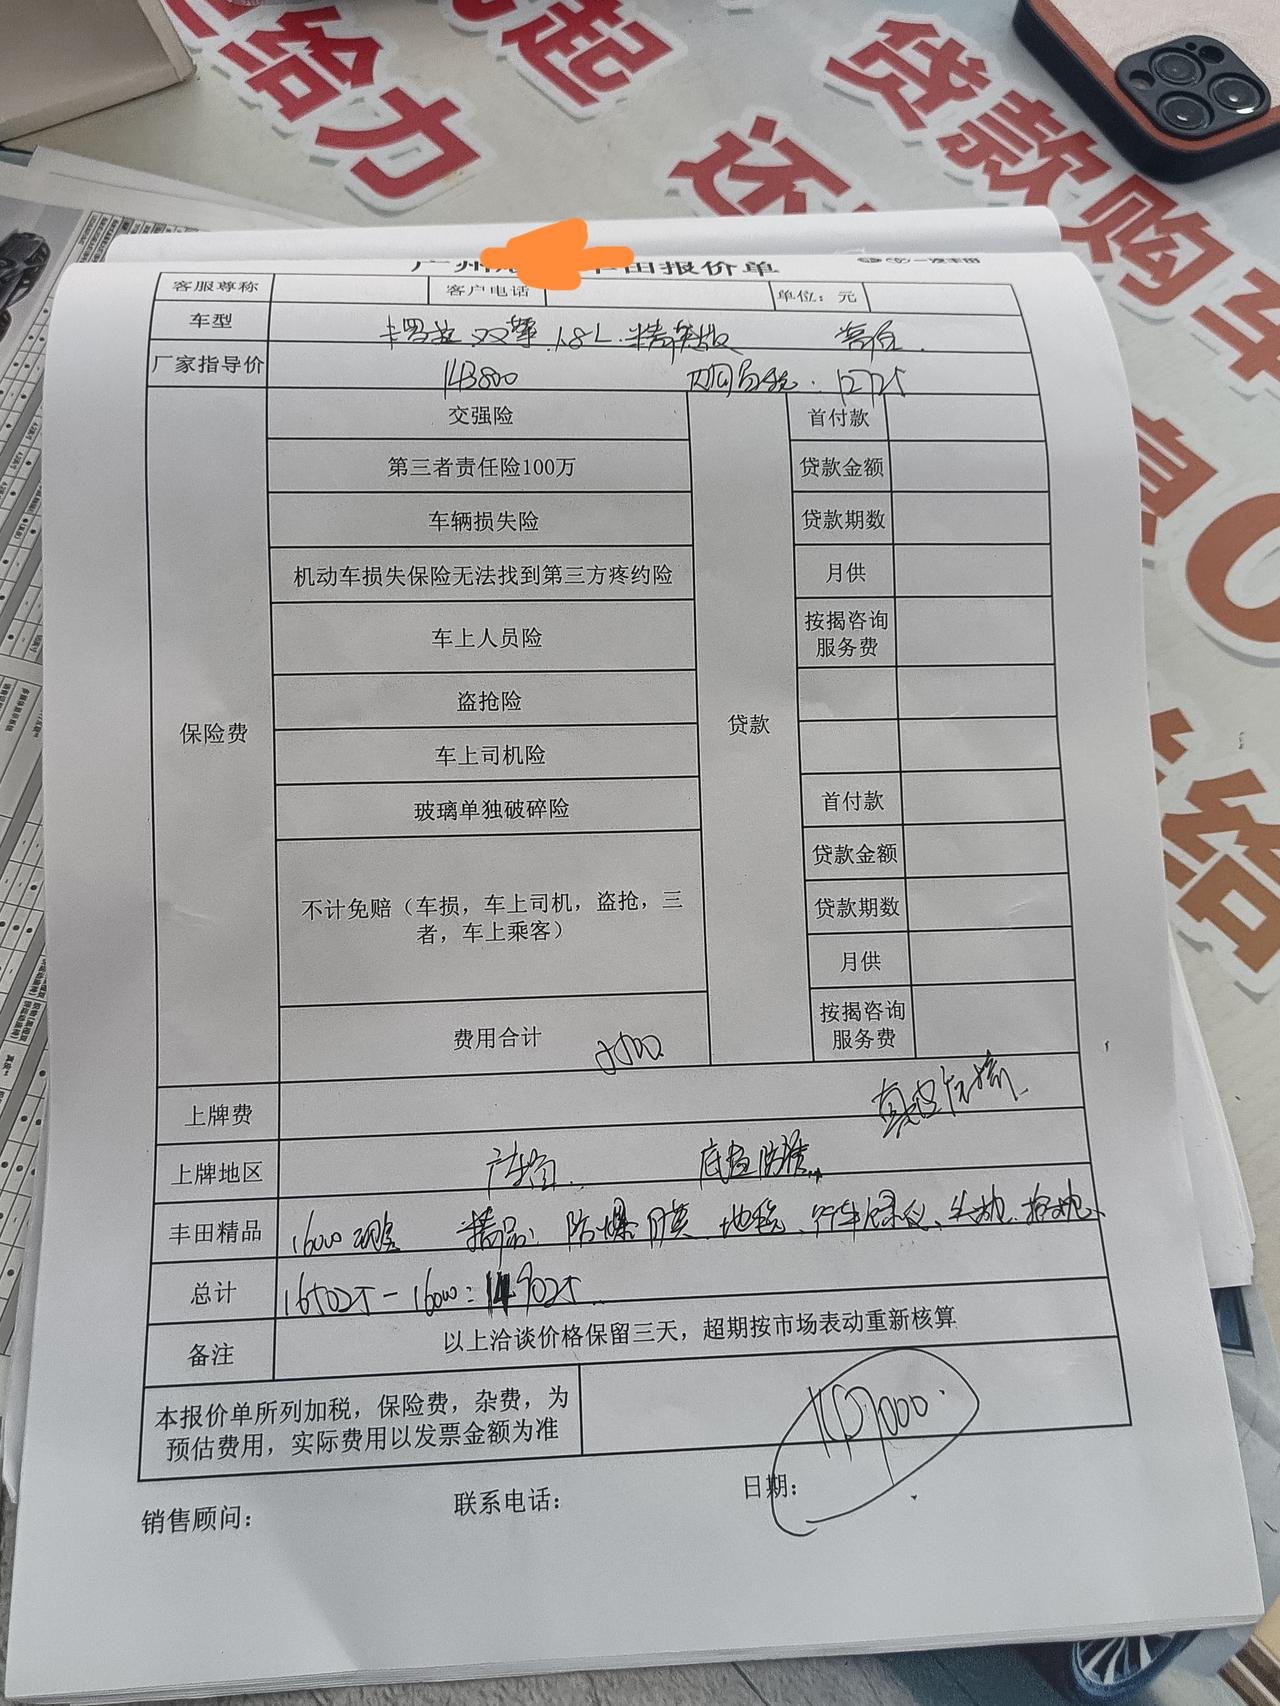 给力
起
贷款购车
还
息0
给
丰田报价单
一汽丰田
客服尊称 客户电话 单位：元
车型 卡罗拉 双擎 1.8L 精英版
厂家指导价 143800 12725
保险费 交强险 贷款 首付款
第三者责任险100万 贷款金额
车辆损失险 贷款期数
机动车损失保险无法找到第三方疼约险 月供
车上人员险 按揭咨询服务费
盗抢险
车上司机险
玻璃单独破碎险 首付款
不计免赔（车损，车上司机，盗抢，三 贷款金额
者，车上乘客） 贷款期数
月供
费用合计 按揭咨询服务费
上牌费
上牌地区 底盘防锈
丰田精品 16000 现金 精品：防爆膜、地毯、行车记录仪、
总计 165025-16000=149025
备注 以上洽谈价格保留三天，超期按市场表动重新核算
本报价单所列加税，保险费，杂费，为
预估费用，实际费用以发票金额为准
销售顾问： 联系电话： 日期：